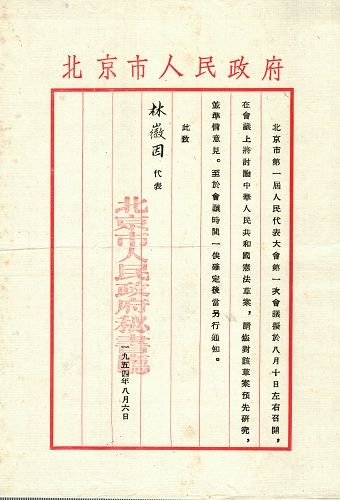 北京市人民政府
北京市第一屆人民代表大會第一次會議擬於八月十日左右召開，
在會議上將討論中華人民共和國憲法草案，請您對該草案預先研究，
並準備意見。至於會議時間一俟確定後當另行通知。
此致
林徽因 代表
北京市人民政府秘書廳
一九五四年八月六日